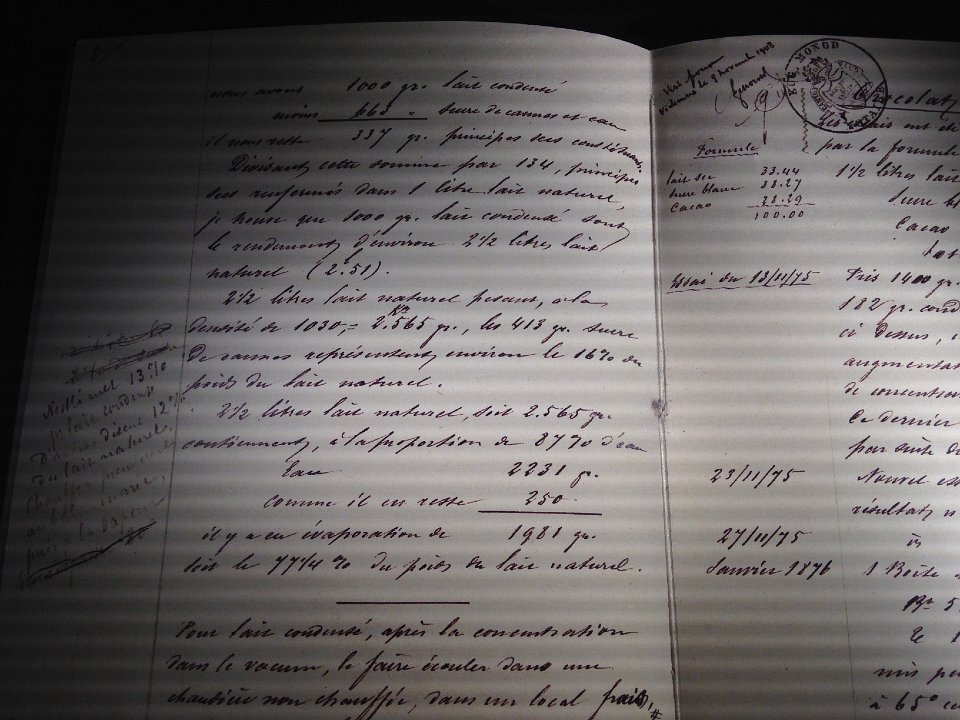 nous avons 1000 gr. lait condensé
moins 663 " sucre de cannes et eau
il nous reste 337 gr. principes secs constituants
Divisant cette somme par 134, principes
secs renfermés dans 1 litre lait naturel,
je trouve que 1000 gr. lait condensé sont
le rendement d'environ 2½ litres lait
naturel (2.51).
2½ litres lait naturel pesant, à la
densité de 1030,= 2.565 gr., les 413 gr. sucre
de cannes représentent environ le 16% du
poids du lait naturel.
2½ litres lait naturel, soit 2.565 gr.
contiennent, à la proportion de 87% d'eau
Eau 2231 gr.
comme il en reste 250
il y a eu évaporation de 1981 gr.
soit le 77¼% du poids du lait naturel.
Pour lait condensé, après la concentration
dans le vacum, le faire écouler dans une
chaudière non chauffée, dans un local frais,
Nestlé met 13%
pr lait condensé
D'autres disent 12%
du lait naturel.
Chauffer
au bain marie,
puis la vapeur
Vevey le 9 novembre 1908
EUG. MONOD
NOTAIRE
Chocolat
Les essais ont été
par la formule
Formule
lait sec 33.44
sucre blanc 38.27
Cacao 28.29
100.00
1½ litres lait
Sucre bl
Cacao
Essai du 13/11/75
Pris 1400 gr.
182 gr. cond
ci dessus,
augmentat
de concentration
Ce dernier
par suite de
23/11/75 Nouvel ess
résultat, n
27/11/75
Janvier 1876 1 Boîte
mis
à 65° ce